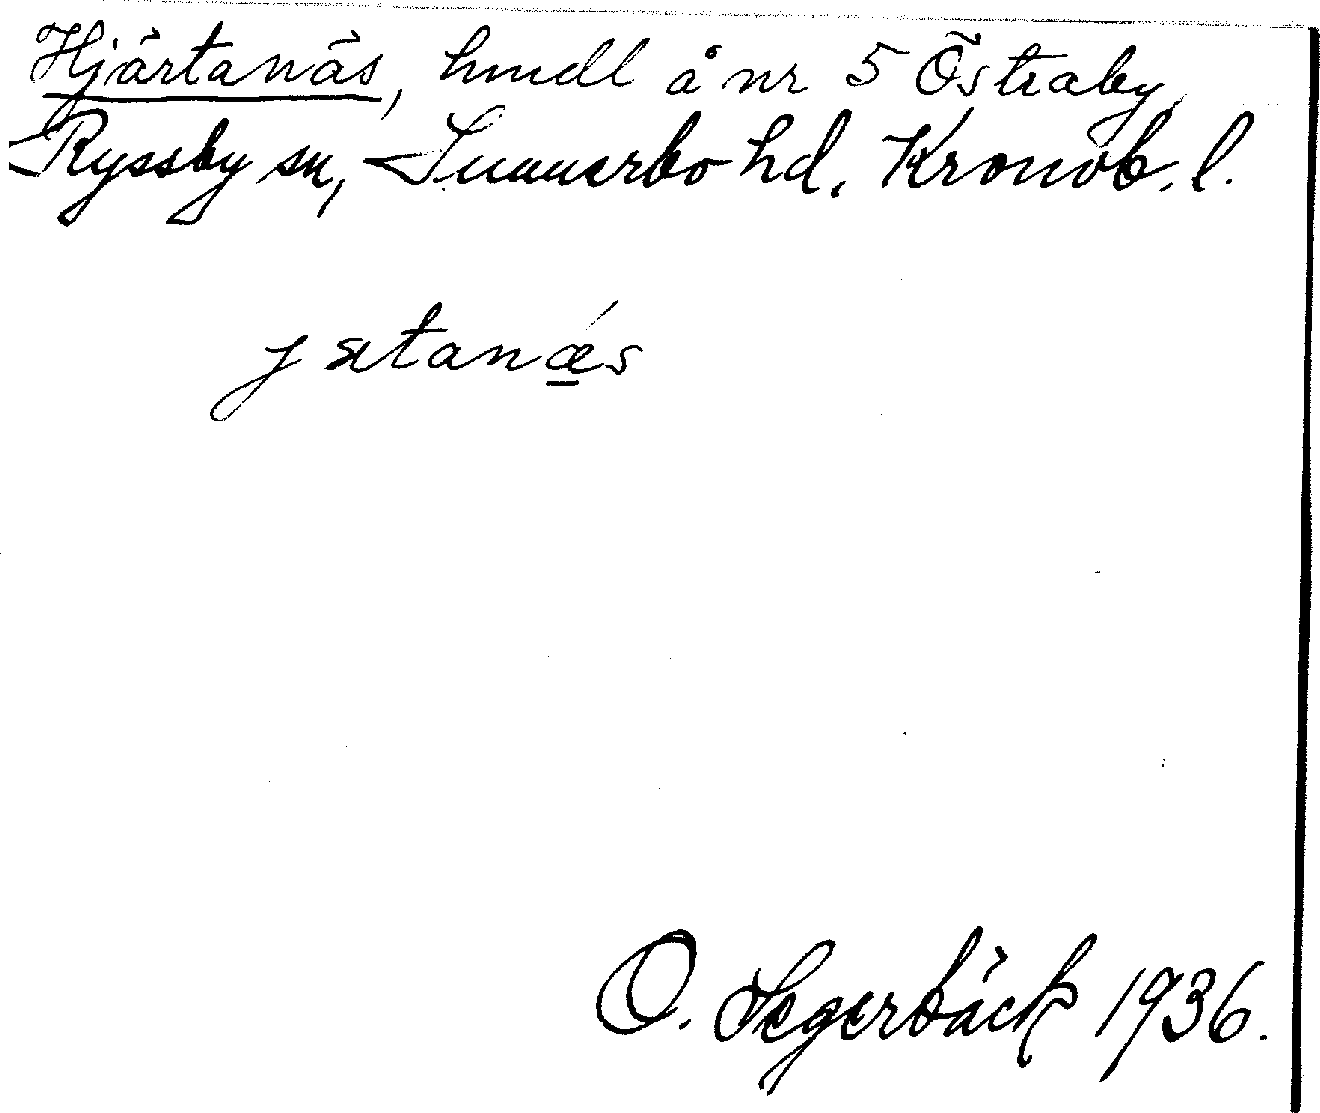 Hjärtanäs, hmdl å nr 5 Östraby,
Ryssby sn, Sunnerbo hd, Kronob. l.
jætanǽs
O. Segerbäck 1936.